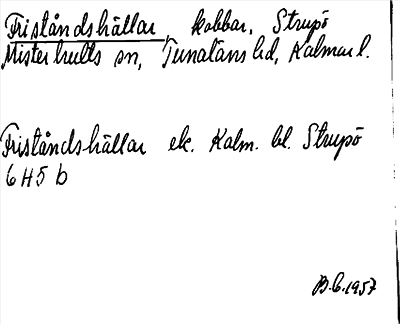 Friståndshällar, kobbar, Strupö
Misterhults sn, Tunaläns hd, Kalmar l.
Friståndshällar ek. Kalm. bl. Strupö
6 H 5 b
B.C. 1957